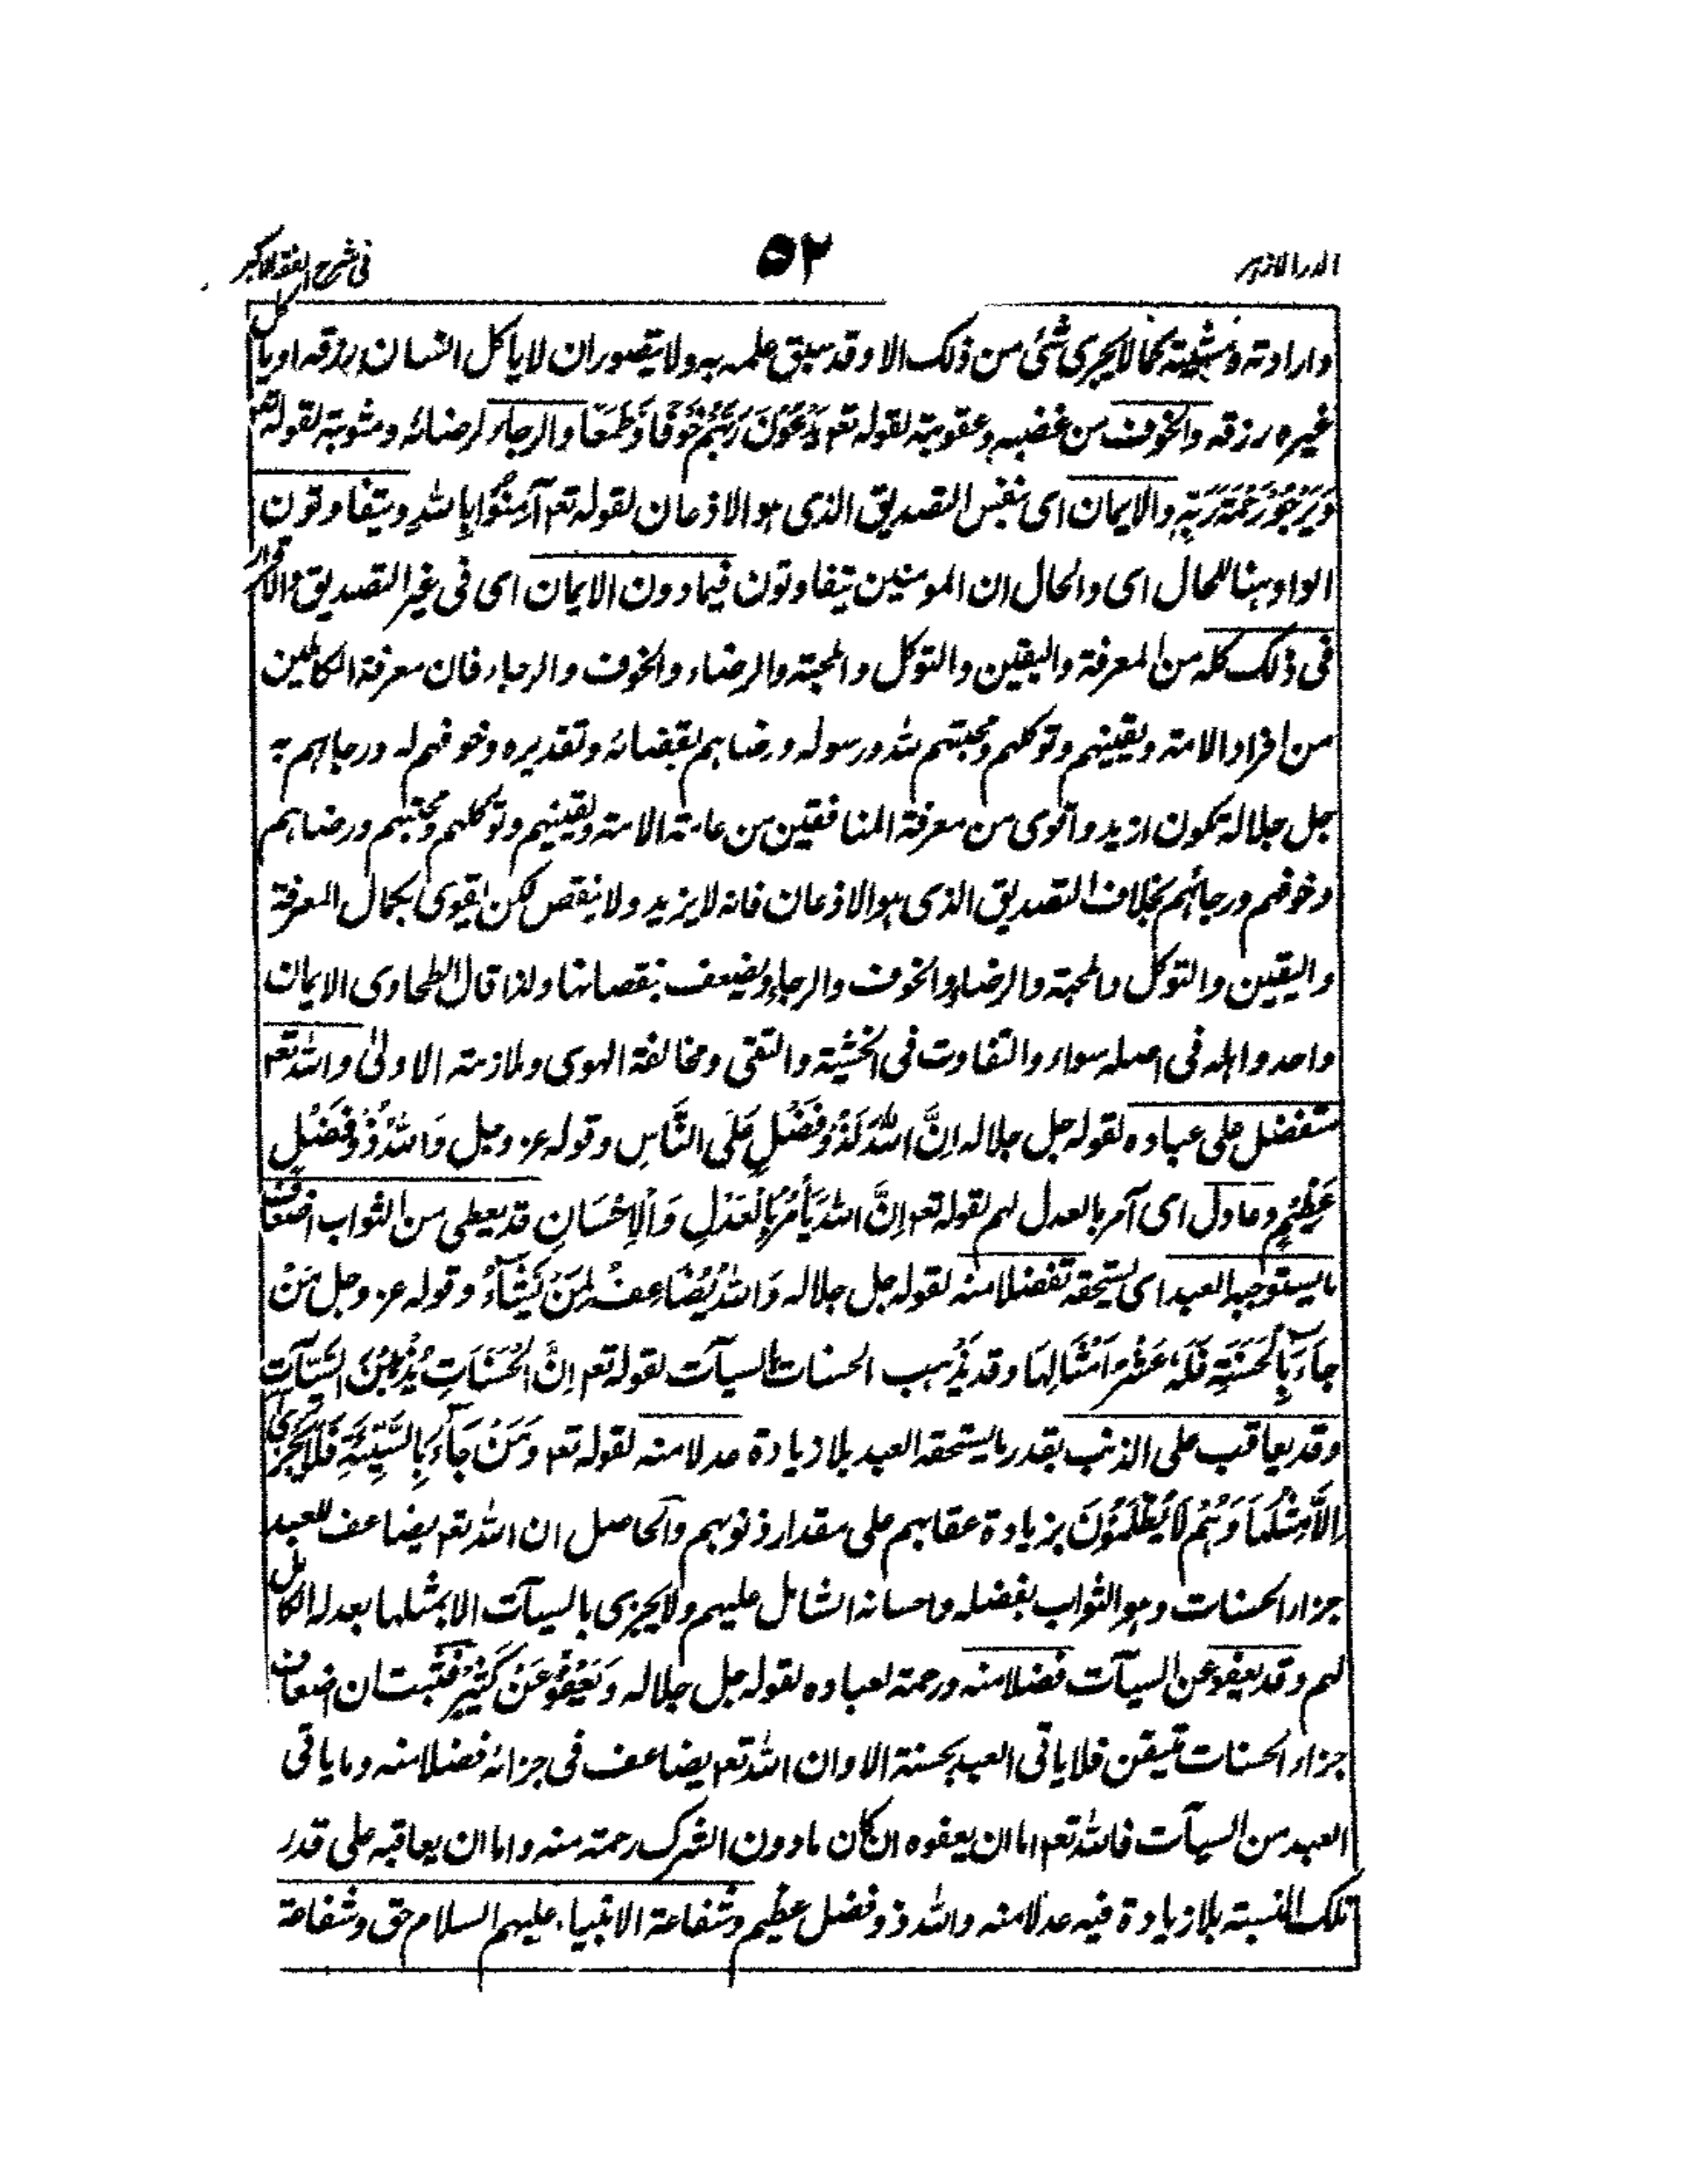 الدر الازهر ٥٢ فى شرح الفقه الاكبر
وارادته ومشيته كما لا يجرى شئى من ذلك الا وقد سبق علمه به ولا يتصور ان لا ياكل انسان رزقه او ياكل
غيره رزقه والخوف من غضبه وعقوبته لقوله تعم يَدْعُوْنَ رَبَّهُمْ خَوْفًا وَّطَمَعًا والرجاء لرضائه ومثوبته لقوله تعم
وَيَرْجُوْ رَحْمَةَ رَبِّهٖ والايمان اى بنفس التصديق الذى هو الاذعان لقوله تعم آمِنُوْا بِاللّٰهِ ويتفاوتون
الواو ههنا للحال اى والحال ان المومنين يتفاوتون فيما دون الايمان اى فى غير التصديق والاقرار
فى ذلك كله من المعرفة واليقين والتوكل والمحبة والرضاء والخوف والرجاء فان معرفة الكاملين
من افراد الامة ويقينهم وتوكلهم ومحبتهم لله ورسوله ورضاهم بقضائه وتقديره وخوفهم له ورجاهم به
جل جلاله تكون ازيد واقوى من معرفة المنافقين من عامة الامة ويقينهم وتوكلهم ومحبتهم ورضاهم
وخوفهم ورجائهم بخلاف التصديق الذى هو الاذعان فانه لا يزيد ولا ينقص لكن يقوى بكمال المعرفة
واليقين والتوكل والمحبة والرضاء والخوف والرجاء ويضعف بنقصانها ولذا قال الطحاوى الايمان
واحد واهله فى اصله سواء والتفاوت فى الخشية والتقى ومخالفة الهوى وملازمة الاولىٰ والله تعم
متفضل على عباده لقوله جل جلاله اِنَّ اللّٰهَ لَذُوْ فَضْلٍ عَلَى النَّاسِ وقوله عز وجل وَاللّٰهُ ذُوْ فَضْلٍ
عَظِيْمٍ وعادل اى آمر بالعدل لهم لقوله تعم اِنَّ اللّٰهَ يَأْمُرُ بِالْعَدْلِ وَالْاِحْسَانِ قد يعطى من الثواب اضعاف
ما يستوجبه العبد اى يستحقه تفضلا منه لقوله جل جلاله وَاللّٰهُ يُضَاعِفُ لِمَنْ يَّشَآءُ وقوله عز وجل مَنْ
جَآءَ بِالْحَسَنَةِ فَلَهٗ عَشْرُ اَمْثَالِهَا وقد يذهب الحسنات السيآت لقوله تعم اِنَّ الْحَسَنَاتِ يُذْهِبْنَ السَّيِّآتِ
وقد يعاقب على الذنب بقدر ما يستحقه العبد بلا زيادة عدلا منه لقوله تعم وَمَنْ جَآءَ بِالسَّيِّئَةِ فَلَا يُجْزٰى
اِلَّا مِثْلَهَا وَهُمْ لَا يُظْلَمُوْنَ بزيادة عقابهم على مقدار ذنوبهم والحاصل ان الله تعم يضاعف للعبد
جزاء الحسنات وهو الثواب بفضله واحسانه الشامل عليهم ولا يجزى بالسيآت الا بمثلها بعدله الكامل
لهم وقد يعفو عن السيآت فضلا منه ورحمة لعباده لقوله جل جلاله وَيَعْفُوْ عَنْ كَثِيْرٍ فثبت ان اضعاف
جزاء الحسنات متيقن فلا ياتى العبد بحسنة الا وان الله تعم يضاعف فى جزائه فضلا منه وما ياتى
العبد من السيآت فالله تعم اما ان يعفوه ان كان ما دون الشرك رحمة منه واما ان يعاقبه على قدر
تلك النسبة بلا زيادة فيه عدلا منه والله ذو فضل عظيم وشفاعة الانبياء عليهم السلام حق وشفاعة